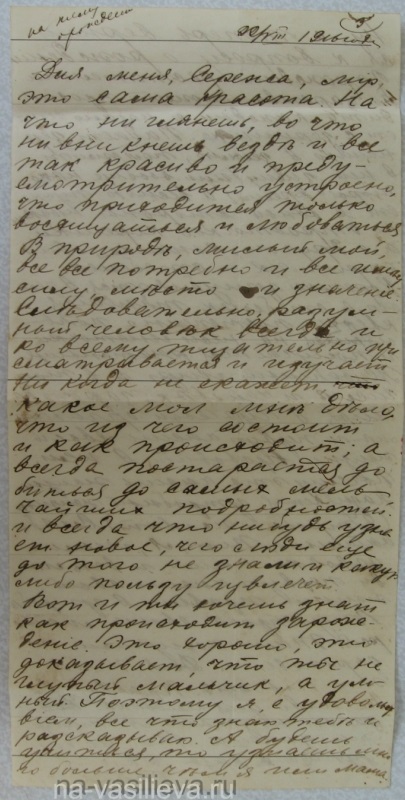 на тему
о рождении
Для меня, Сережа, мир
это сама красота. На
что ни глянешь, во что
ни вникнешь вездѣ и все
так красиво и преду-
смотрительно устроено,
что приходится только
восхищаться и любоваться
В природѣ, милый мой,
все все потребно и все
силу мѣсто и значение
Слѣдовательно, разум-
ный человѣк всегда и
ко всему тщательно при
сматривается и изучает
Никогда не скажет
какое мол мнѣ дѣло,
что из чего состоит
и как происходит; а
всегда постарается до
биться до самых мель
чайших подробностей
и всегда что нибудь узна
ет новое, чего люди еще
до того не знали и какую
либо пользу извлечет
Вот и ты хочешь знать
как происходит зарож-
дение. Это хорошо, это
доказывает, что ты не
глупый мальчик, а ум
ный Поэтому я с удоволь
вием, все что знаю тебѣ и
разсказываю. А будешь
учиться, то узнаешь мно
го больше, чѣм я или мама.
na-vasilieva.ru